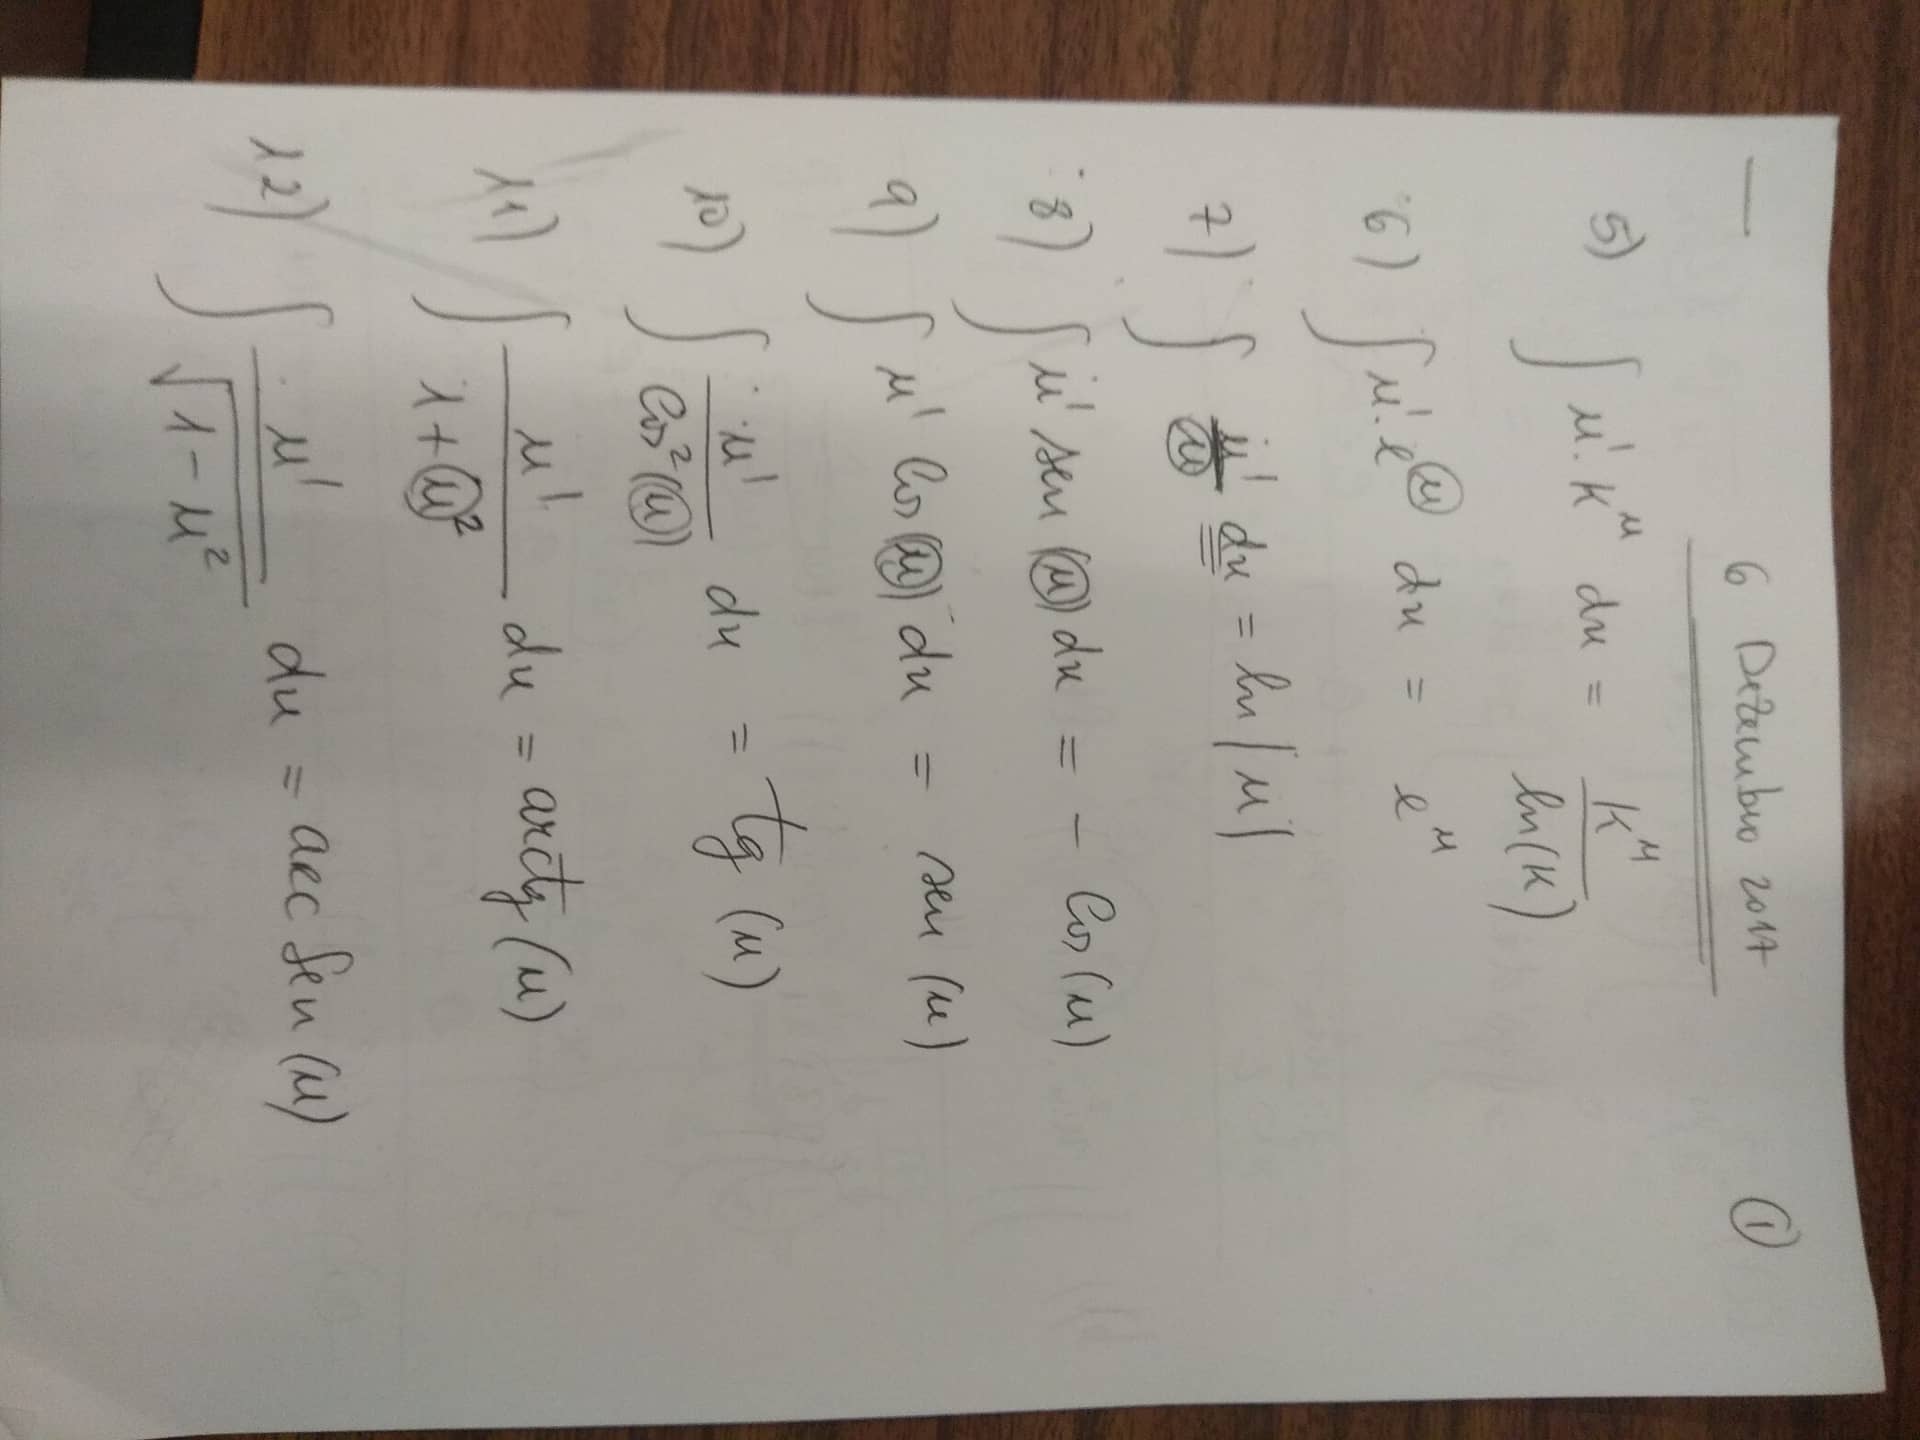 6 Dezembro 2017 ①
5) ∫ u'. K^u du = K^u / ln(K)
6) ∫ u'. e^u du = e^u
7) ∫ u'/u du = ln |u|
8) ∫ u' sen (u) du = - Cos (u)
9) ∫ u' Cos (u) du = sen (u)
10) ∫ u' / Cos²(u) du = tg (u)
11) ∫ u' / 1+u² du = arctg (u)
12) ∫ u' / √1-u² du = arc Sen (u)